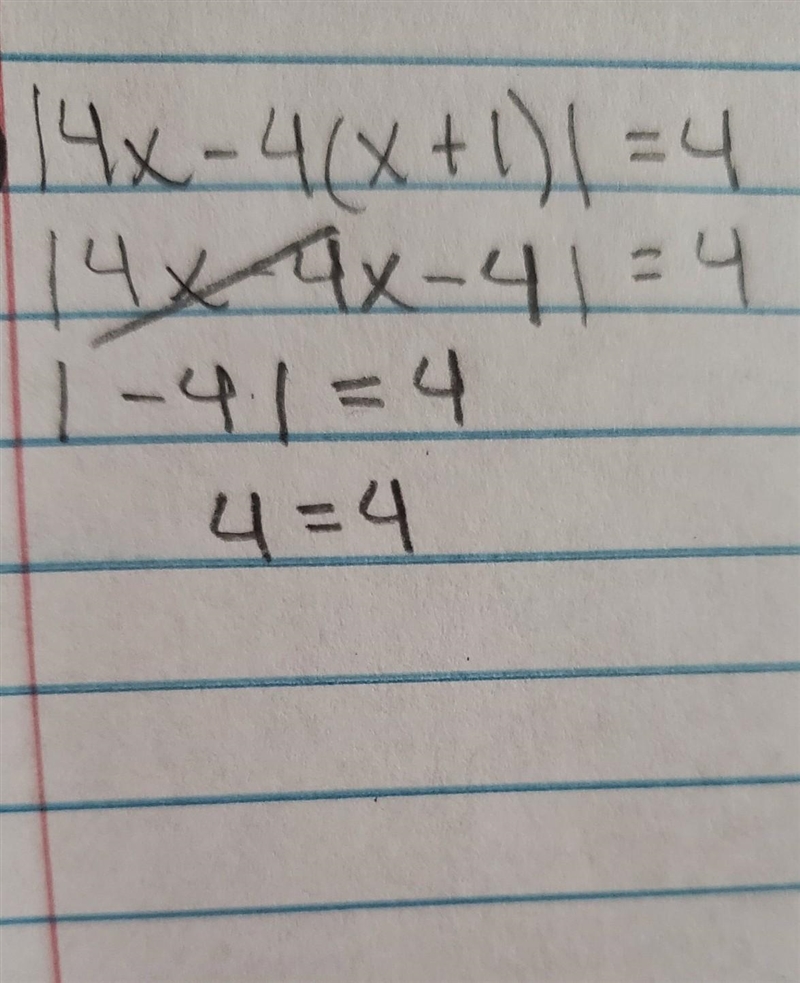 |4x - 4(x + 1)| = 4
|4x - 4x - 4| = 4
|-4| = 4
4 = 4